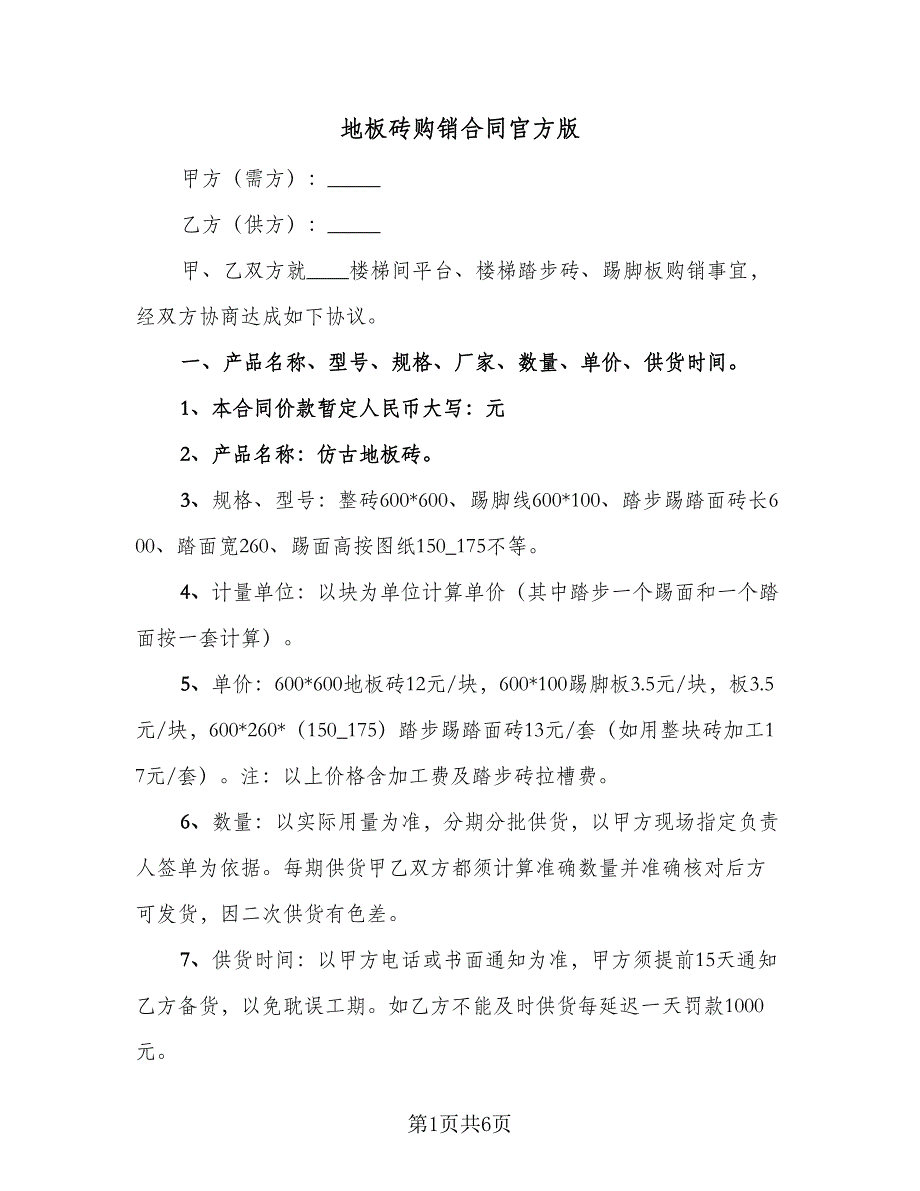 地板砖购销合同官方版
甲方（需方）：_____
乙方（供方）：_____
甲、乙双方就____楼梯间平台、楼梯踏步砖、踢脚板购销事宜，
经双方协商达成如下协议。
一、产品名称、型号、规格、厂家、数量、单价、供货时间。
1、本合同价款暂定人民币大写：元
2、产品名称：仿古地板砖。
3、规格、型号：整砖600*600、踢脚线600*100、踏步踢踏面砖长6
00、踏面宽260、踢面高按图纸150_175不等。
4、计量单位：以块为单位计算单价（其中踏步一个踢面和一个踏
面按一套计算）。
5、单价：600*600地板砖12元/块，600*100踢脚板3.5元/块，板3.5
元/块，600*260*（150_175）踏步踢踏面砖13元/套（如用整块砖加工1
7元/套）。注：以上价格含加工费及踏步砖拉槽费。
6、数量：以实际用量为准，分期分批供货，以甲方现场指定负责
人签单为依据。每期供货甲乙双方都须计算准确数量并准确核对后方
可发货，因二次供货有色差。
7、供货时间：以甲方电话或书面通知为准，甲方须提前15天通知
乙方备货，以免耽误工期。如乙方不能及时供货每延迟一天罚款1000
元。
第1页共6页